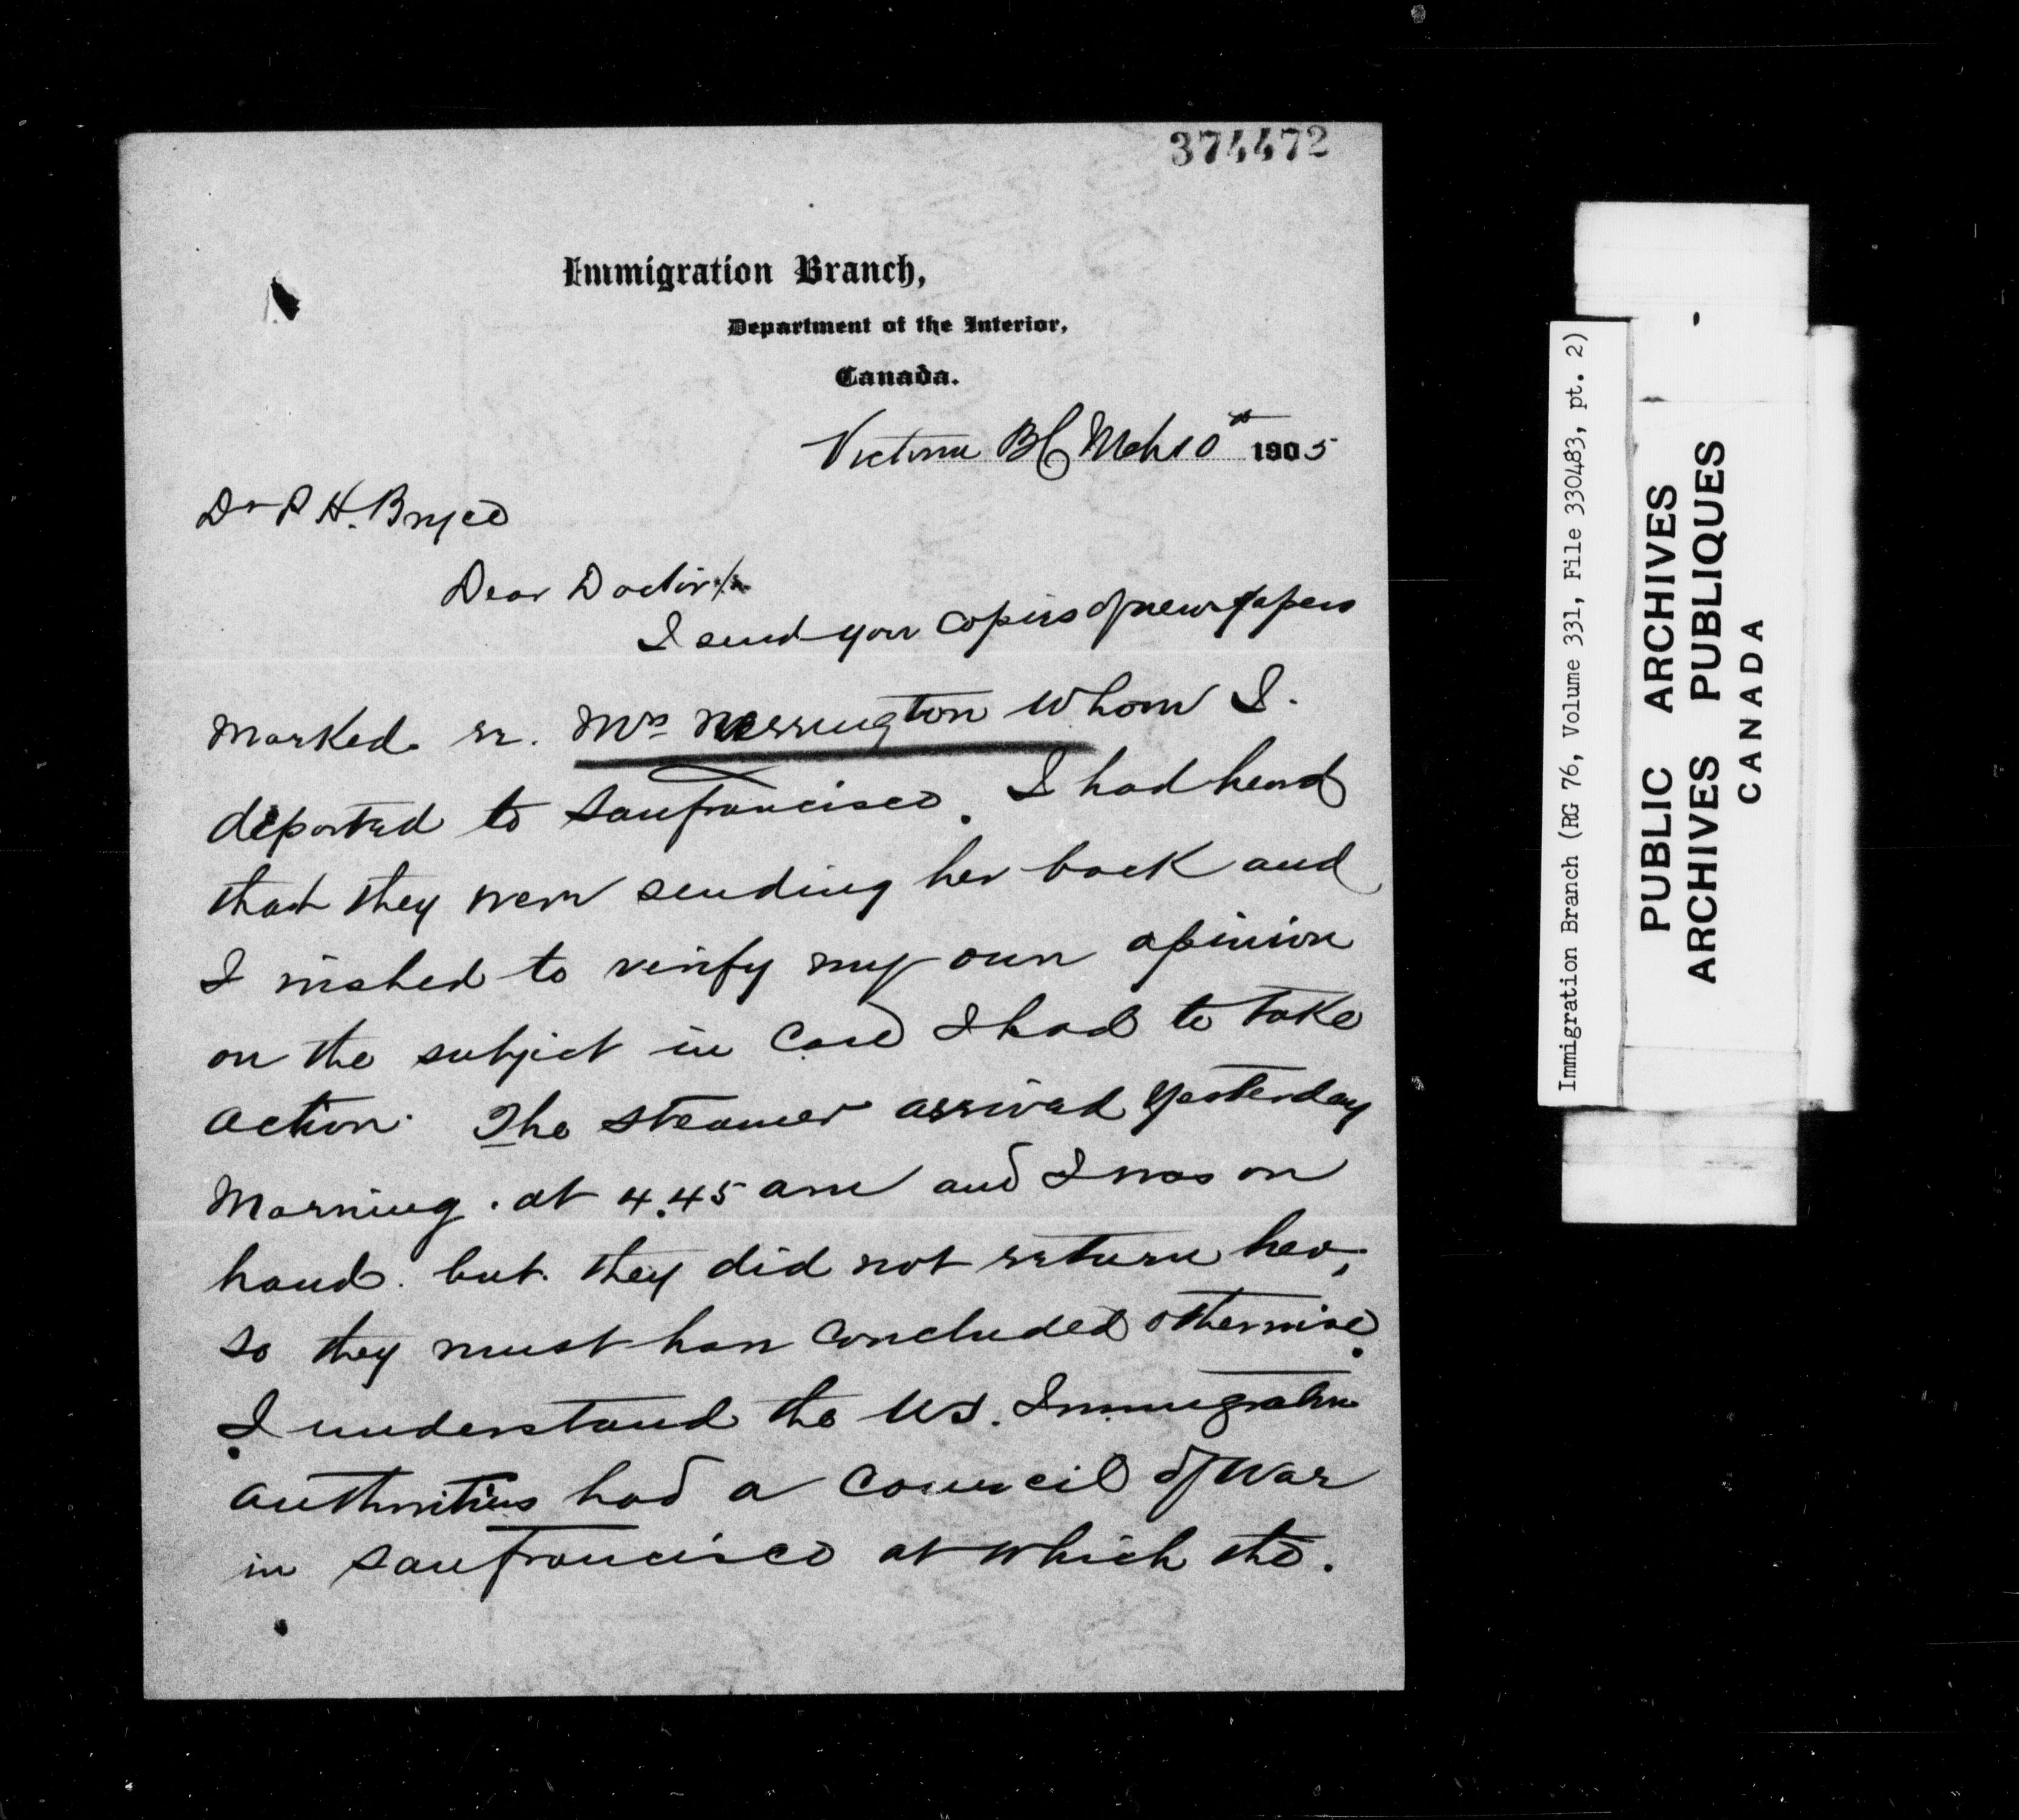 374472
Immigration Branch,
Department of the Interior,
Canada.
Victoria BC Mch 10th 1905
Dr P H. Bryce
Dear Doctor/
I send you copies of newspapers
marked re. Mrs whom I.
deported to Sanfrancisco. I had heard
that they were sending her back and
I wished to verify my own opinion
on the subject in case I had to take
action. The steamer arrived yesterday
morning. at 4.45 am and I was on
hand. but. they did not return her,
so they must have concluded otherwise.
I understand the US. Immigration
authorities had a council of war
in Sanfrancisco at which the.
Immigration Branch (RG 76, Volume 331, File 330483, pt. 2)
PUBLIC ARCHIVES
ARCHIVES PUBLIQUES
CANADA